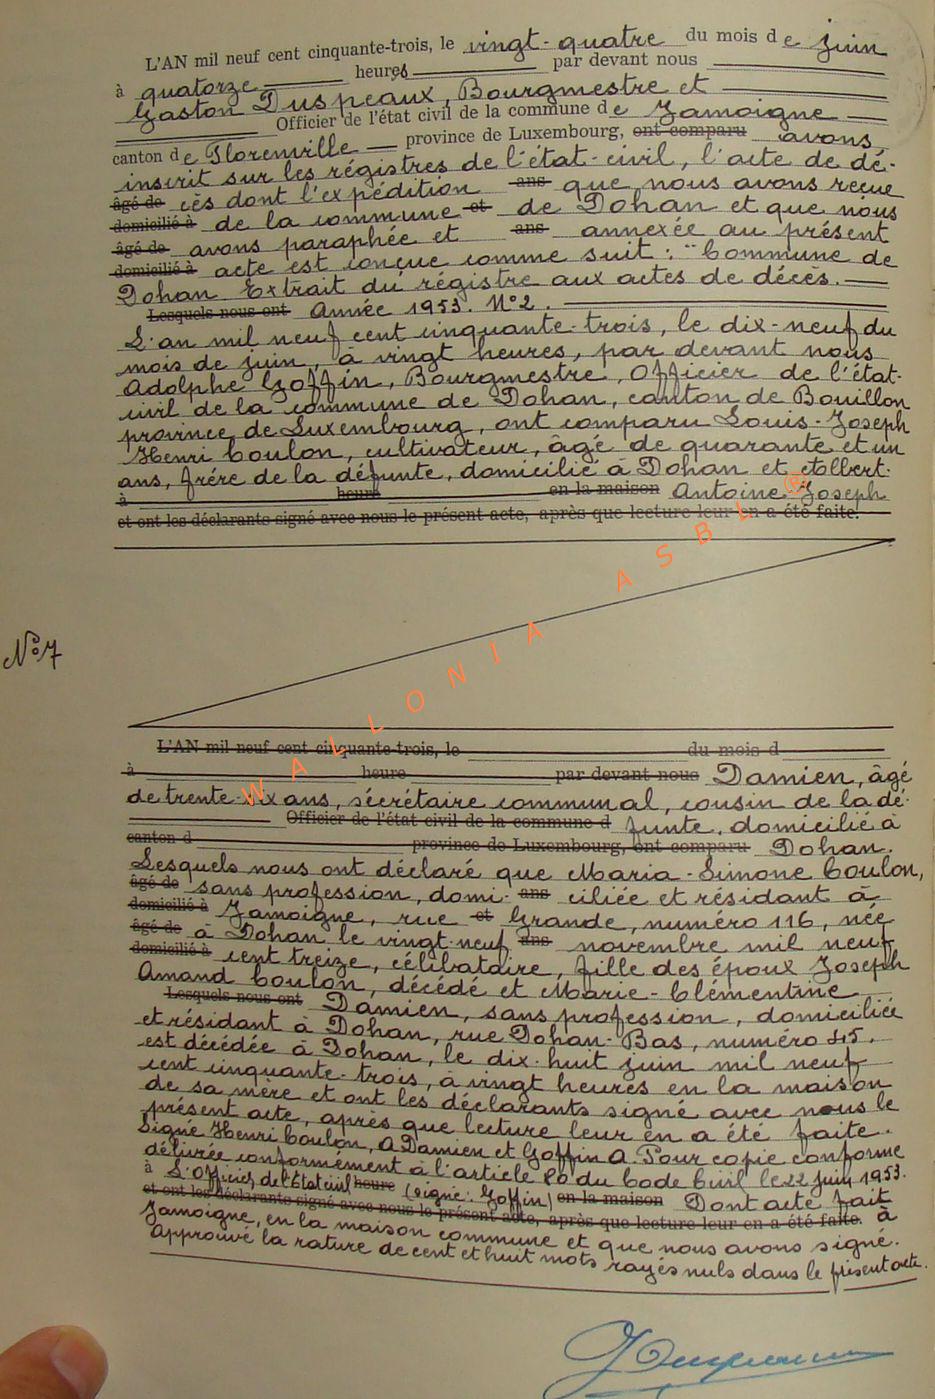 L'AN mil neuf cent cinquante-trois, le vingt-quatre du mois de juin
à quatorze heures par devant nous
Gaston Duspeaux, Bourgmestre et
Officier de l'état civil de la commune de Jamoigne
canton de Florenville province de Luxembourg, ont comparu avons,
inscrit sur les régistres de l'état-civil, l'acte de dé-
âgé de cès dont l'expédition ans que nous avons reçue
domicilié à de la commune et de Dohan et que nous
âgé de avons paraphée et ans annexée au présent
domicilié à acte est conçue comme suit : "Commune de
Dohan Extrait du régistre aux actes de décès.
Lesquels nous ont Année 1953. N°2.
L'an mil neuf cent cinquante-trois, le dix-neuf du
mois de juin, à vingt heures, par devant nous
Adolphe Goffin, Bourgmestre, Officier de l'état-
civil de la commune de Dohan, canton de Bouillon
province de Luxembourg, ont comparu Louis-Joseph
Henri Coulon, cultivateur, âgé de quarante et un
ans, frére de la défunte, domicilié à Dohan et Albert-
à heure en la maison Antoine-Joseph
et ont les déclarants signé avec nous le présent acte, après que lecture leur en a été faite.
WALLONIA ASBL ®
N°7
L'AN mil neuf cent cinquante-trois, le du mois d
à heure par devant nous Damien, âgé
de trente-six ans, sécrétaire communal, cousin de la dé-
Officier de l'état civil de la commune d funte, domicilié à
canton d province de Luxembourg, ont comparu Dohan.
Lesquels nous ont déclaré que Maria-Simone Coulon,
âgé de sans profession, domi- ans ciliée et résidant à
domicilié à Jamoigne, rue et Grande, numéro 116, née
âgé de à Dohan le vingt-neuf ans novembre mil neuf
domicilié à cent treize, célibataire, fille des époux Joseph
Amand Coulon, décédé et Marie-Clémentine
Lesquels nous ont Damien, sans profession, domiciliée
et résidant à Dohan, rue Dohan-Bas, numéro 45,
est décédée à Dohan, le dix-huit juin mil neuf
cent cinquante-trois, à vingt heures en la maison
de sa mère et ont les déclarants signé avec nous le
présent acte, après que lecture leur en a été faite.
Signé Henri Coulon, A Damien et Goffin A. Pour copie conforme
délivrée conformément à l'article 80 du Code Civil le 22 juin 1953.
à L'Officier de l'Etat civil heure (signé: Goffin) en la maison Dont acte fait
et ont les déclarants signé avec nous le présent acte, après que lecture leur en a été faite. à
Jamoigne, en la maison commune et que nous avons signé.
Approuvé la rature de cent et huit mots rayés nuls dans le présent acte.